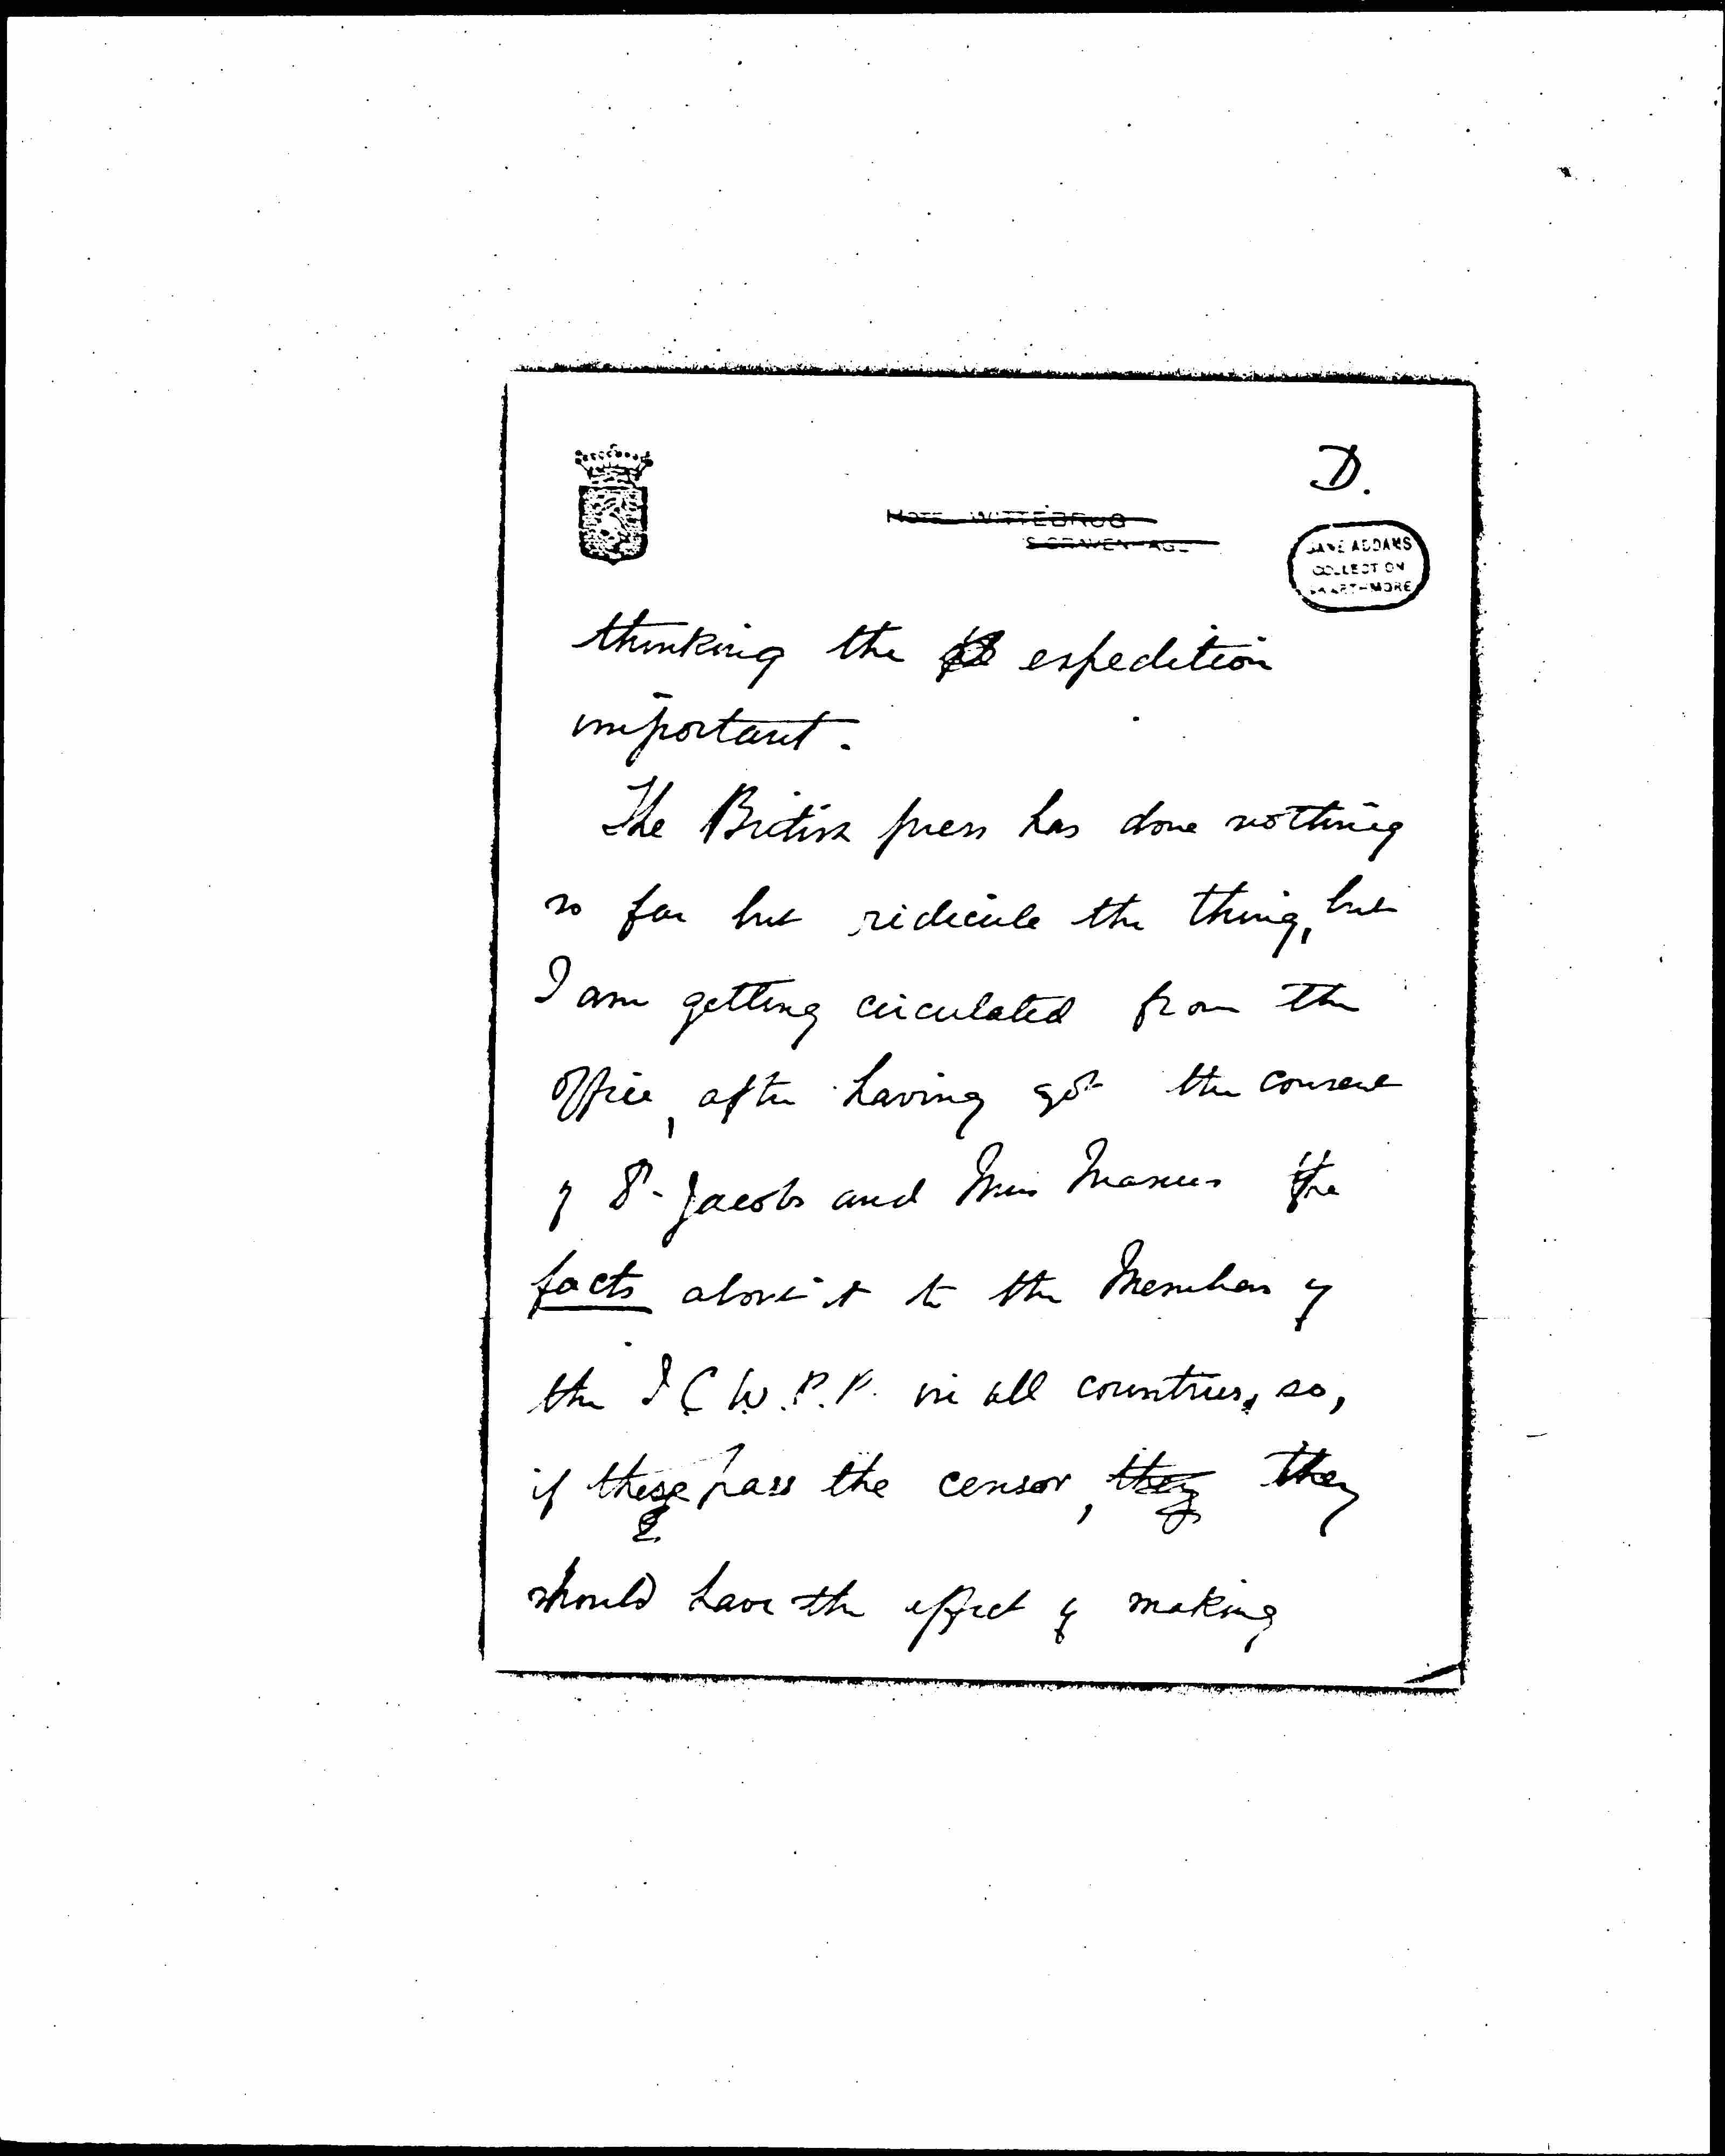 D.
HOTEL WITTEBRUG
'S GRAVENHAGE
JANE ADDAMS
COLLECTION
SWARTHMORE
thinking the expedition
important.
The British press has done nothing
so far but ridicule the thing, but
I am getting circulated from the
Office, after having got the consent
of Dr. Jacobs and Miss Manus the
facts about it to the Members of
the I C W. P. P. in all countries, so,
if these pass the censor, they they
should have the effect of making